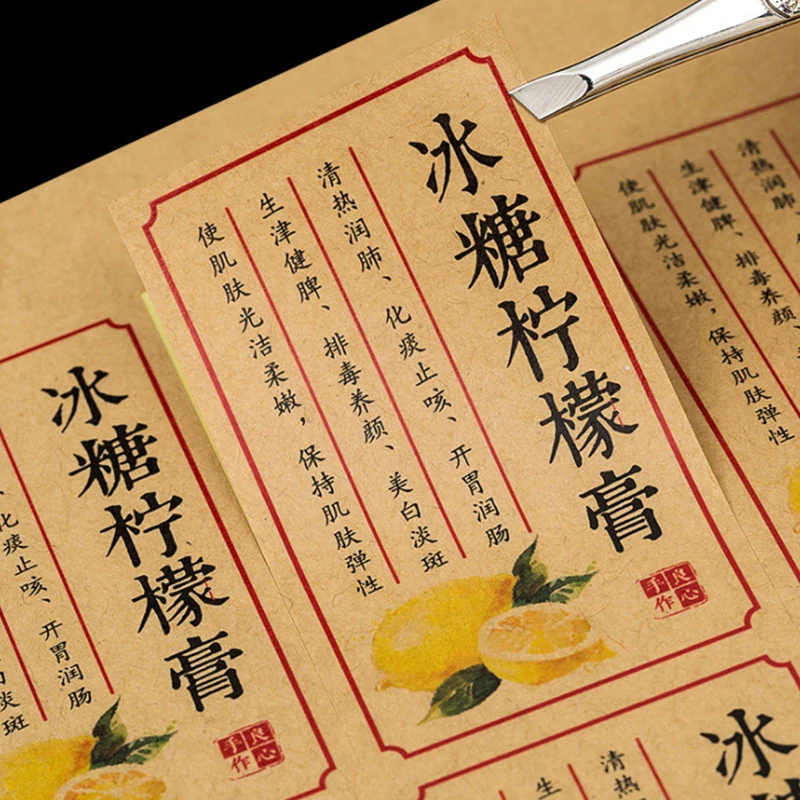 冰糖柠檬膏
清热润肺、化痰止咳、开胃润肠
生津健脾、排毒养颜、美白淡斑
使肌肤光洁柔嫩，保持肌肤弹性
良心手作
冰糖柠檬膏
化痰止咳、开胃润肠
淡斑
良心手作
清热润肺、
生津健脾、排毒养颜、
使肌肤光洁柔嫩，保持肌肤弹性
冰糖
清热
生